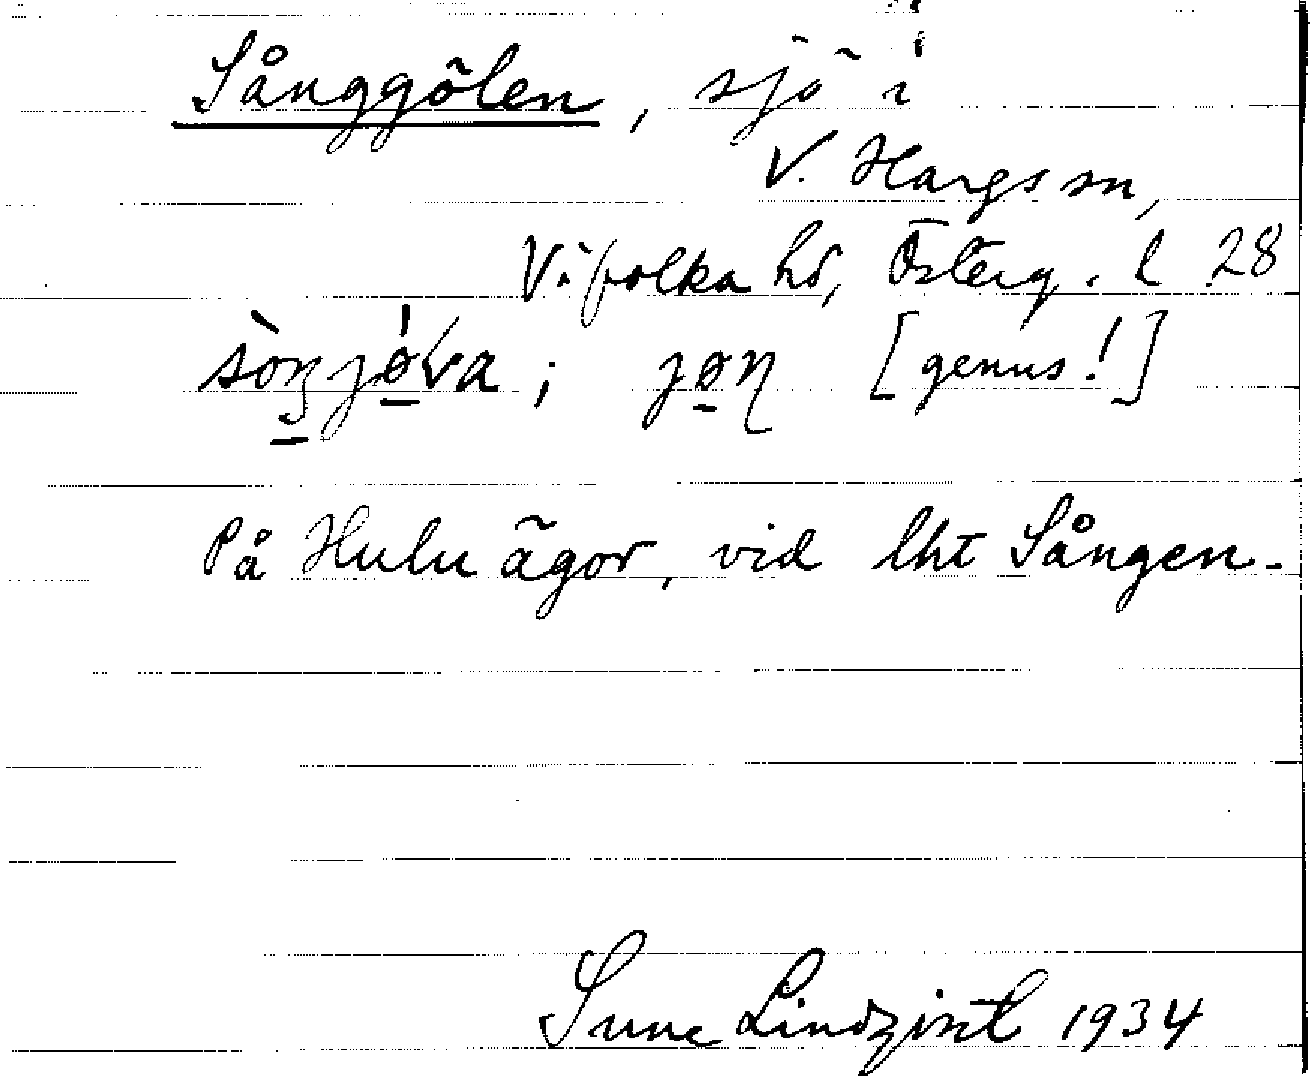 Sånggölen, sjö i
V. Hargs sn,
Vifolka hd, Österg. l 28
[genus!]
På Hulu ägor, vid lht Sången.
Sune Lindqvist 1934